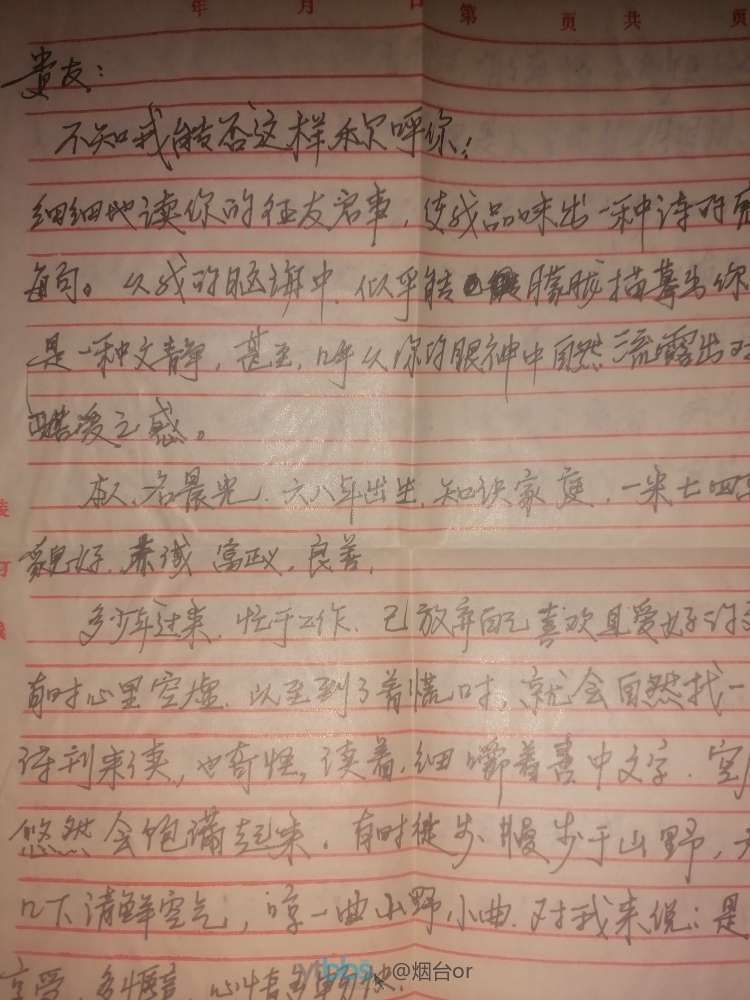 年 月 日 第 页 共 页
贵友：
不知我能否这样称呼你！
细细地读你的征友启事，使我品味出一种诗的
每句。从我的脑海中，似乎能朦胧描摹出你
是一种文静，甚至，几乎从你的眼神中自然流露出对
酷爱之感。
本人名晨光，六八年出生，知识家庭，一米七四
貌好，赤诚 富正义，良善，
多少年过来，忙于工作，已放弃自己喜欢且爱好
有时心里空虚，以至到了着慌时，就会自然找一
诗刊来读，也奇怪，读着，细嚼着书中文字，空
悠然会饱满起来。有时徒步、慢步于山野，
几下清鲜空气，哼一曲小野小曲，对我来说；是
享受，多惬意，心情多
订
bbs @烟台or